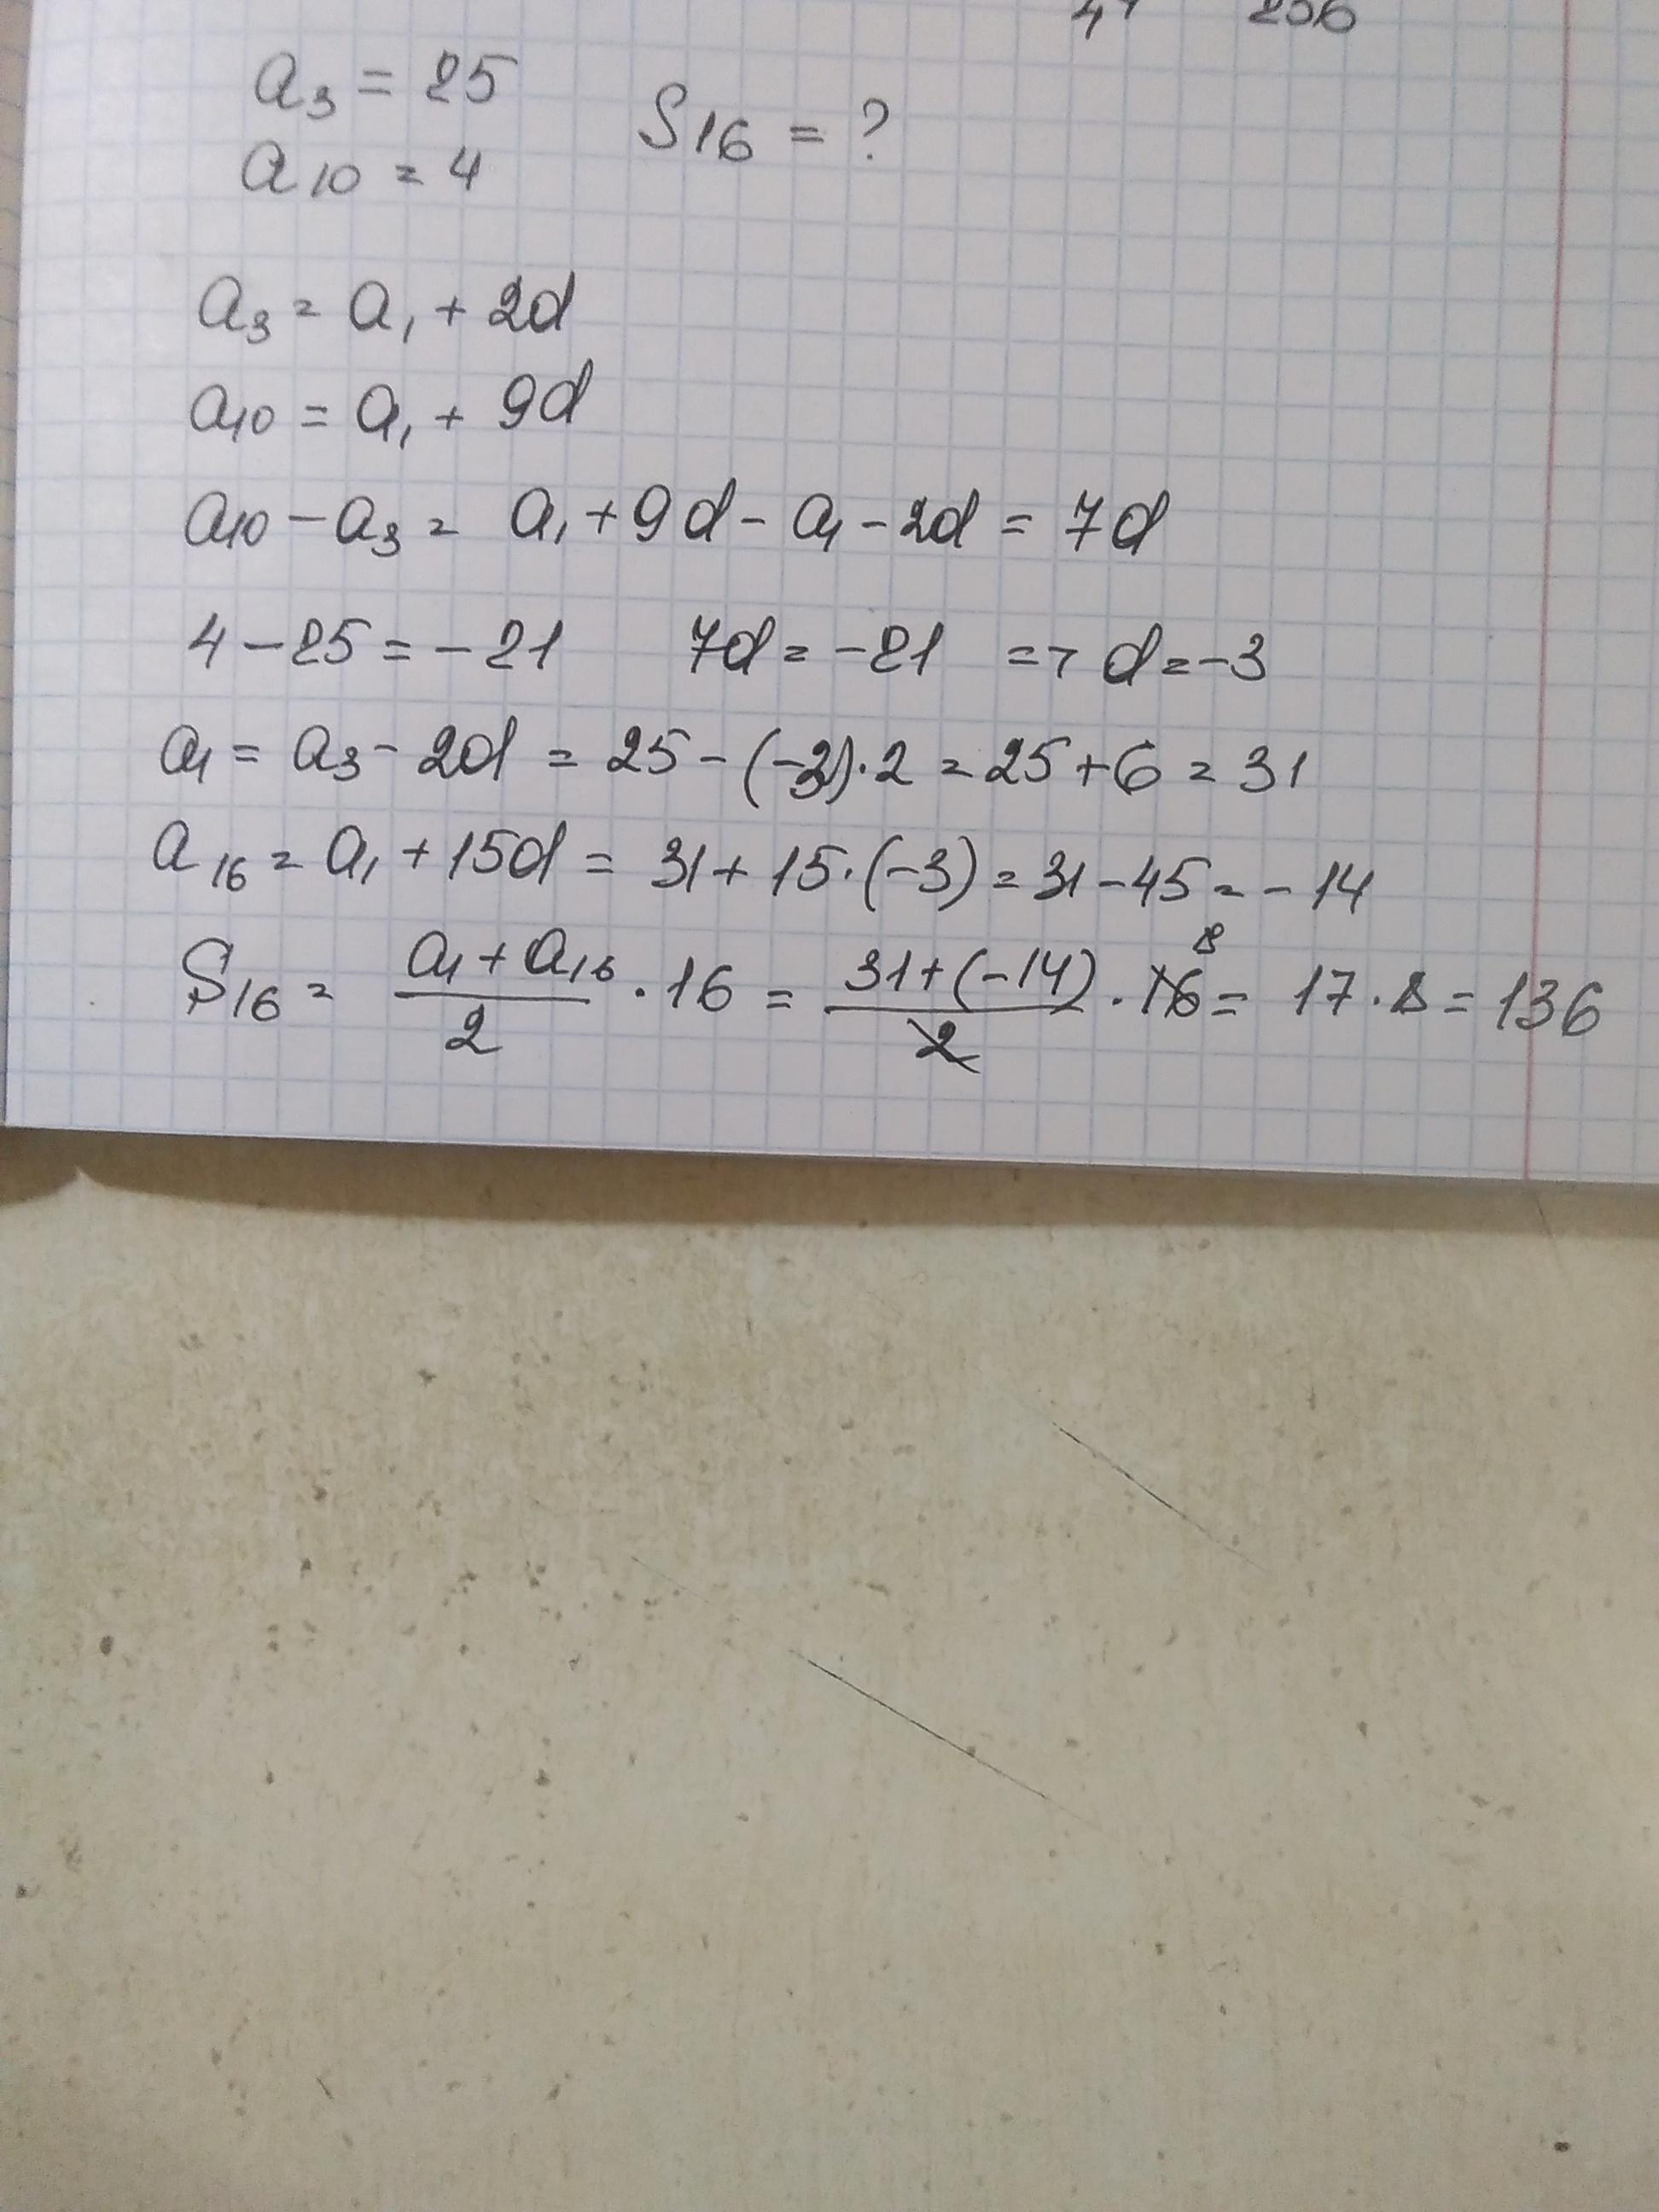 a₃ = 25
S₁₆ = ?
a₁₀ = 4
a₃ = a₁ + 2d
a₁₀ = a₁ + 9d
a₁₀ - a₃ = a₁ + 9d - a₁ - 2d = 7d
4 - 25 = - 21 7d = -21 => d = -3
a₁ = a₃ - 2d = 25 - (-3)·2 = 25 + 6 = 31
a₁₆ = a₁ + 15d = 31 + 15·(-3) = 31 - 45 = - 14
S₁₆ = (a₁ + a₁₆)/2 · 16 = (31 + (-14))/2 · 16 8 = 17 · 8 = 136